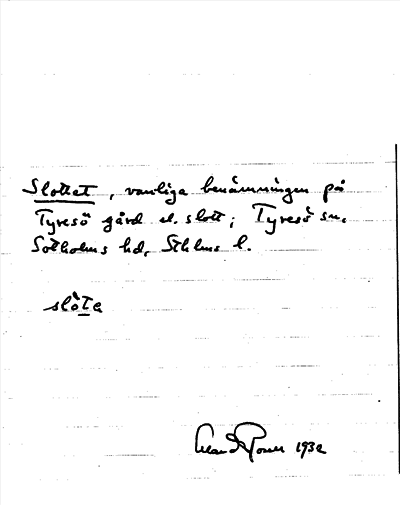 Slottet, vanliga benämningen på
Tyresö gård el. slott; Tyresö sn.
Sotholms hd, Sthlms l.
slòta
1932